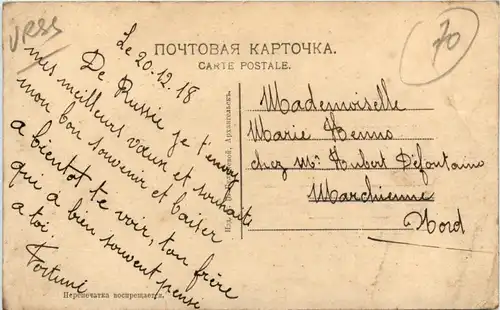 URSS
70
ПОЧТОВАЯ КАРТОЧКА.
CARTE POSTALE.
Le 20-12-18
De Russie je t'envoi
mes meilleurs vœux et souhaits
mon bon souvenir et baiser
a bientot te voir, ton frère
que à bien souvent pensé
a toi.
Fortuné
Mademoiselle
Marie
chez Mr Hubert Defontaine
Marchienne
Nord
Архангельскъ.
Перепечатка воспрещается.